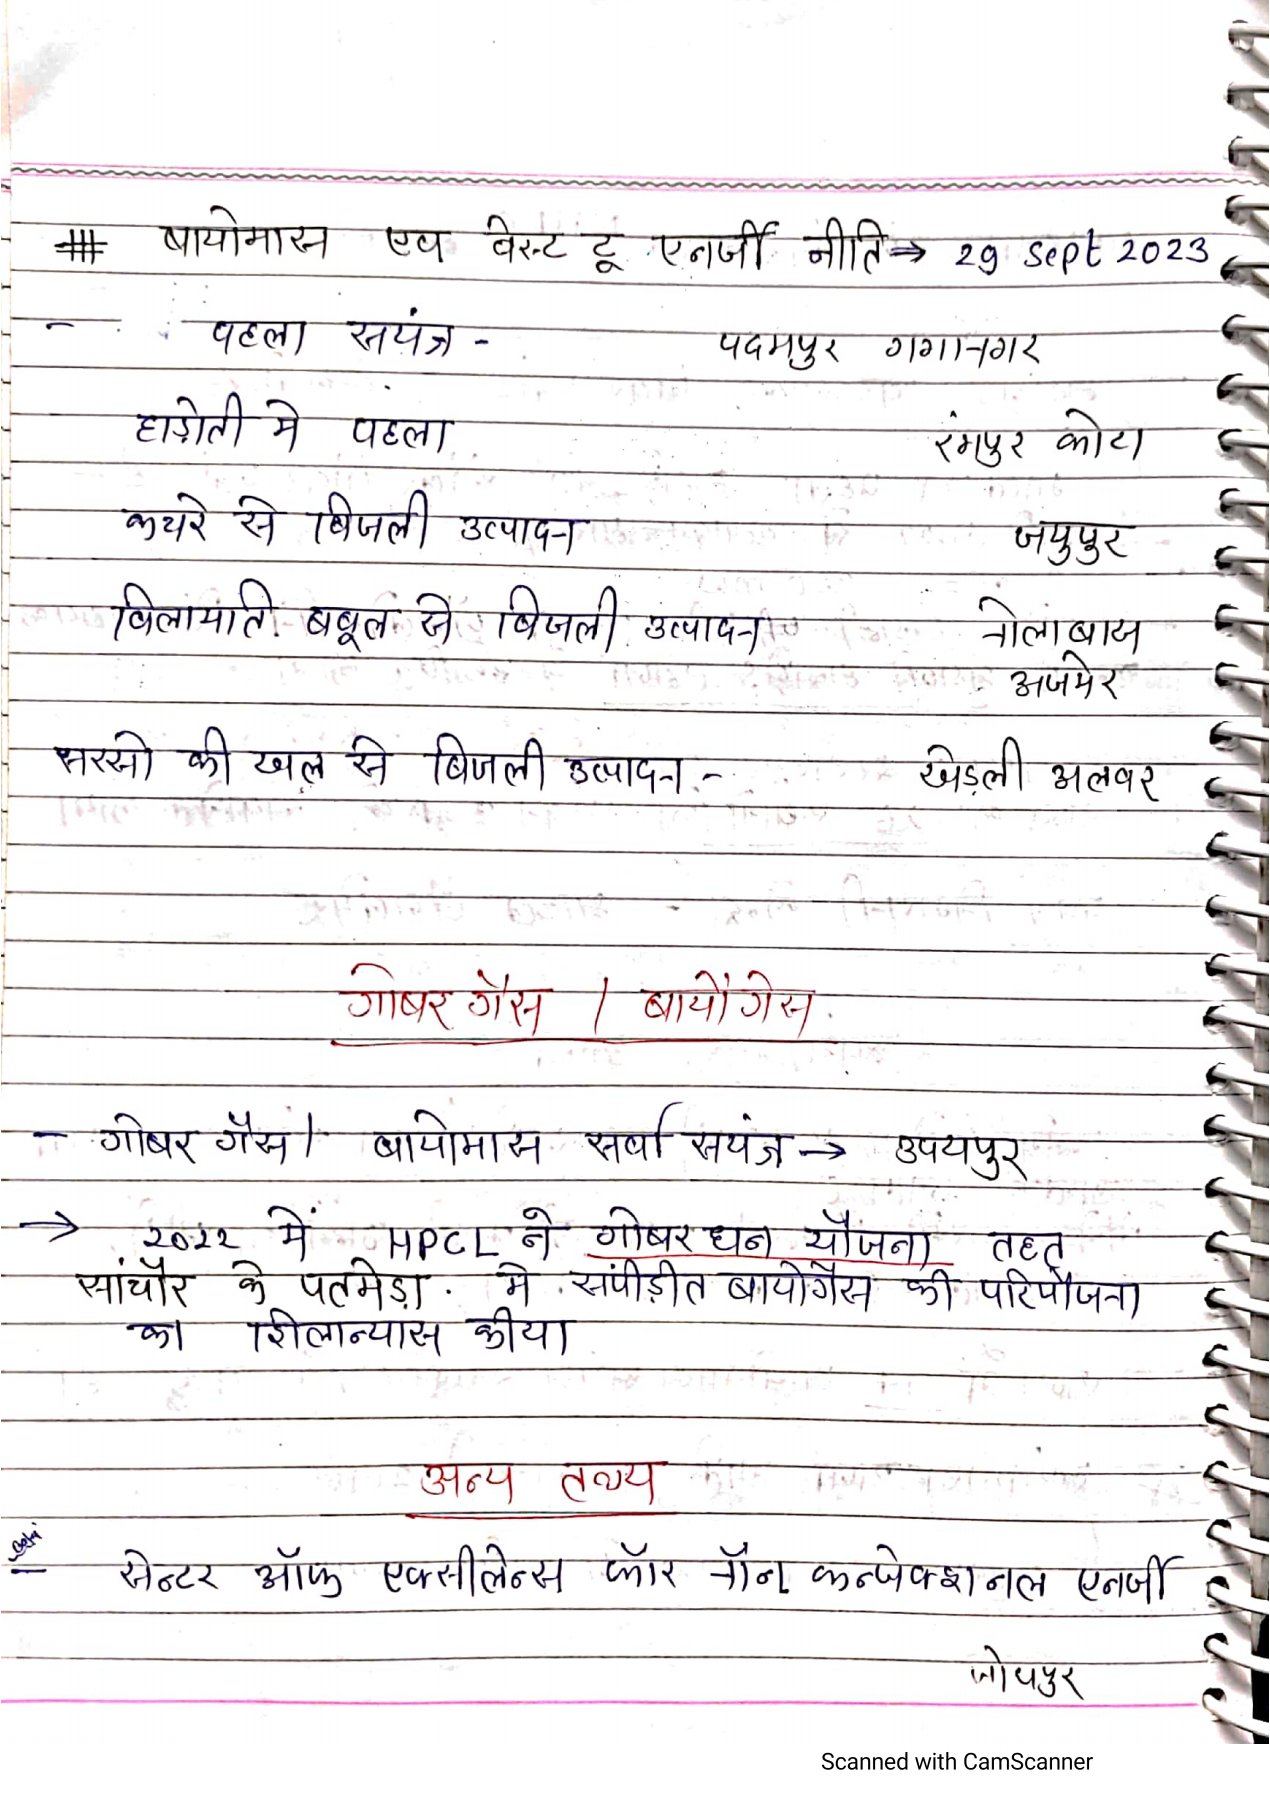 # बायोमास एव वेस्ट टू एनर्जी नीति → 29 Sept 2023
- पहला सयंत्र - पदमपुर गगानगर
हाड़ोती मे पहला रंगपुर कोटा
कचरे से बिजली उत्पादन जयुपुर
विलायाति बबूल से बिजली उत्पादन नोलाबास
अजमेर
सरसो की खल से बिजली उत्पादन - खेड़ली अलवर
गोबर गैस / बायोगेस
- गोबर गैस / बायोमास सर्वा सयंत्र → उपयपुर
→ 2022 में HPCL ने गोबर धन यौजना तहत्
सांचौर के पतमेड़ा मे संपीड़ीत बायोगैस की परियौजना
का शिलान्यास कीया
अन्य तथ्य
- सेन्टर ऑफ एक्सीलेन्स फॉर नॉन कन्वेक्शनल एनर्जी
जोधपुर
Scanned with CamScanner